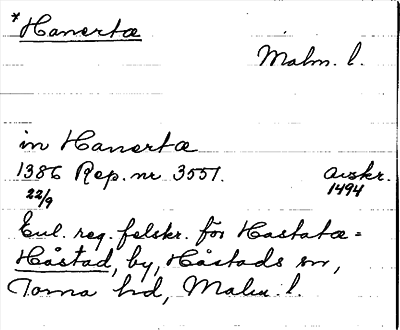 *Hanertæ
Malm. l.
in Hanertæ
1386 Rep. nr 3551. avskr.
22/9 1494
Enl. reg. felskr. för Hastatæ =
Håstad, by, Håstads sn,
Torna hd, Malm. l.